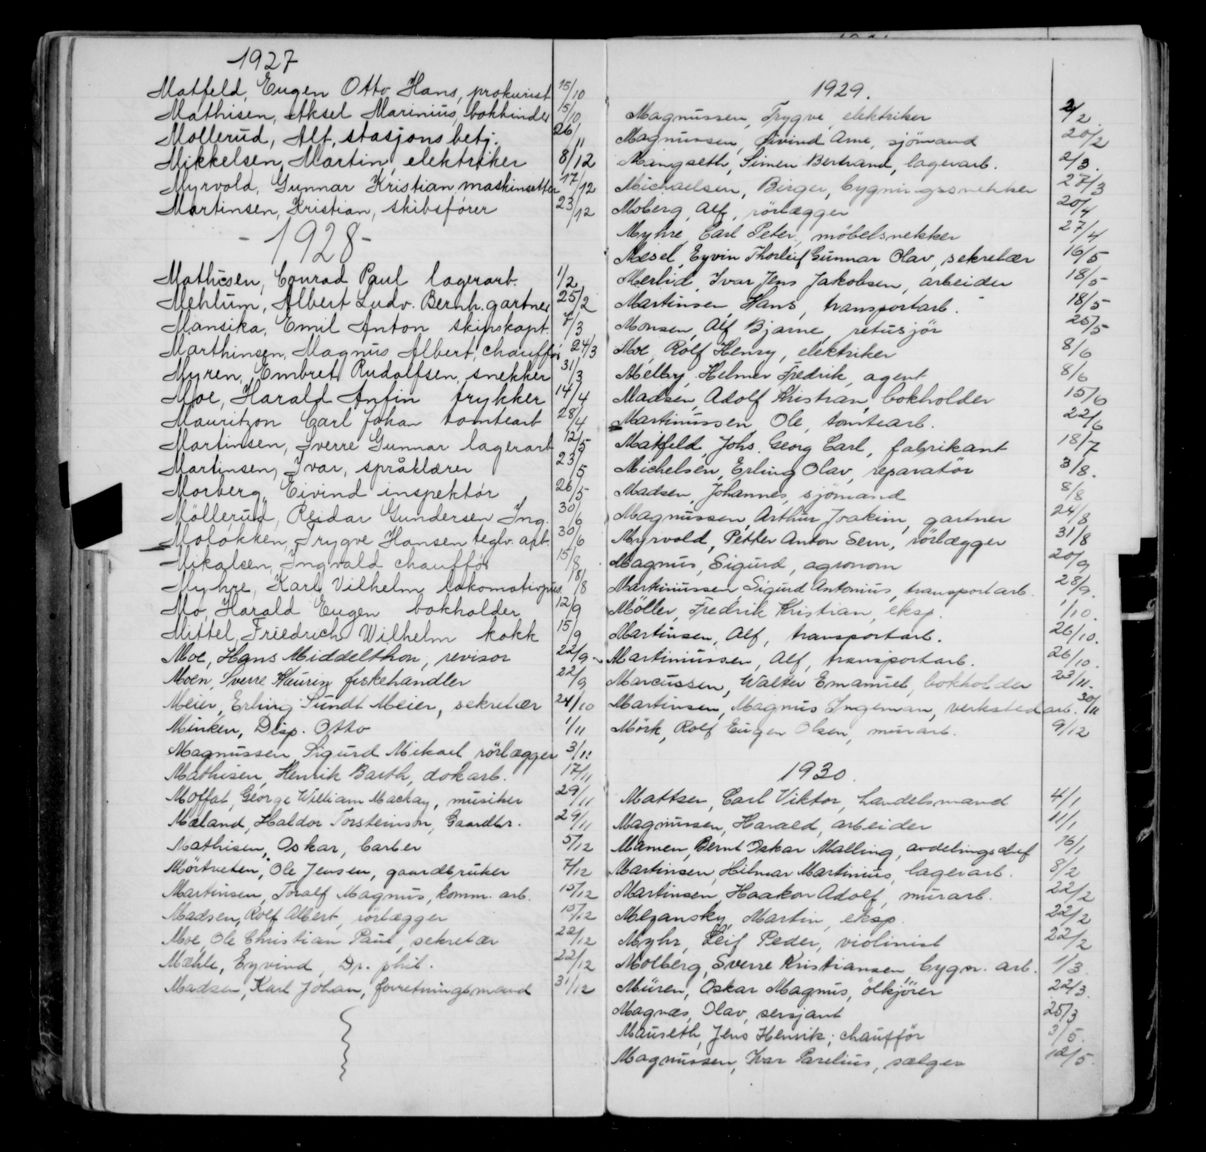 1927
Matfeld, Eugen Otto Hans, prokurist 15/10
Mathisen, Aksel Marinius, bokbinder 15/10
Mollerud, Alf, stasjonsbetj. 26/11
Mikkelsen, Martin elektriker 8/12
Myrvold, Gunnar Kristian maskinsetter 17/12
Martinsen, Kristian, skibsfører 23/12
- 1928 -
Mathisen, Conrad Paul lagerarb. 1/2
Mehlum, Albert Ludv. Bernh. gartner 25/2
Mansika, Emil Anton skinskapt. 7/3
Marthinsen, Magnus Albert, chauffør 24/3
Myren, Embret Rudolfsen, snekker 31/3
Moe, Harald Anfin trykker 14/4
Mauritzon Carl Johan tomtearb 28/4
Martinsen, Sverre Gunnar lagerarb 12/5
Martinsen, Ivar, språklærer 23/5
Morberg, Eivind inspektør 26/5
Möllerud, Reidar Gundersen Ing. 30/6
Moløkken, Trygve Hansen teglv. arb. 30/6
Mikalsen, Ingvald chauffør 15/8
Myhre, Karl Vilhelm lokomotivpus 18/8
Mo, Harald Eugen bokholder 12/9
Mittel, Friedrich Wilhelm kokk 15/9
Moe, Hans Middelthon, revisor 22/9
Moen, Sverre Haurin fiskehandler 22/9
Meier, Erling Sundt Meier, sekretær 24/10
Minken, Disp. Otto 1/11
Magnussen, Sigurd Mikael rörlægger 3/11
Mathisen, Henrik Barth, dokarb. 17/11
Moffat, George William Mackay, musiker 29/11
Mæland, Haldor Torsteinson, Gaardbr. 29/11
Mathisen, Oskar, barber 5/12
Mörtveten, Ole Jensen, gaardbruker 7/12
Martinsen, Toralf Magnus, komm. arb. 15/12
Madsen, Rolf Albert, rörlægger 15/12
Moe, Ole Christian Paul, sekretær 22/12
Mæhle, Eyvind, Dr. phil. 22/12
Madsen, Karl Johan, forretningsmand 31/12
1929.
Magnussen, Trygve elektriker 2/2
Magnussen, Eivind Arne, sjömand 20/2
Mangseth, Simen Bertrand, lagerarb. 2/3
Michaelsen, Birger, bygningssnekker 27/3
Moberg, Alf, rörlægger 20/4
Myhre Carl Peter, möbelsnekker 27/4
Mæsel, Eyvin Thorleif Gunnar Olav, sekretær 16/5
Mærlid, Ivar Jens Jakobsen, arbeider 18/5
Martinsen Hans, transportarb. 18/5
Monsen, Alf Bjarne, retusjör 25/5
Moe, Rolf Henry, elektriker 8/6
Melby, Helmer Fredrik, agent 8/6
Madsen, Adolf Kristian, bokholder 15/6
Martinussen, Ole, tomtearb. 22/6
Matfeld, Johs. Georg Carl, fabrikant 18/7
Michelsen, Erling Olav, reparatör 3/8.
Madsen, Johannes, sjömand 8/8
Magnussen, Arthur Joakim, gartner 24/8
Myrvold, Petter Anton Sem, rörlægger 31/8
Magnus, Sigurd, agronom 20/9
Martinussen Sigurd Antonius, transportarb. 28/9.
Möller, Fredrik Kristian, eksp. 1/10.
Martinsen, Alf, transportarb. 26/10.
Martiniussen, Alf, transportarb. 26/10.
Marcussen, Walter Emanuel, bokholder 23/11.
Martinsen, Magnus Ingeman, verkstedarb. 30/11
Mörk, Rolf Eugen Olsen, murarb. 9/12
1930.
Mattsen, Carl Viktor, handelsmand 4/1
Magnussen, Harald, arbeider 11/1
Mamen, Bernt Oskar Malling, avdelingschef 16/1
Martinsen, Hilmar Martinius, lagerarb. 8/2
Martinsen, Haakon Adolf, murarb. 22/2
Mezansky, Martin, eksp. 22/2
Myhr, Leif Peder, violinist 22/2
Molberg, Sverre Kristiansen bygn. arb. 1/3
Müren, Oskar Magnus, ölkjörer 22/3.
Magnæs, Olav, sersjant 25/3
Mauseth, Jens Henrik, chaufför 3/5.
Magnussen, Ivar Parelius, sælger 10/5.